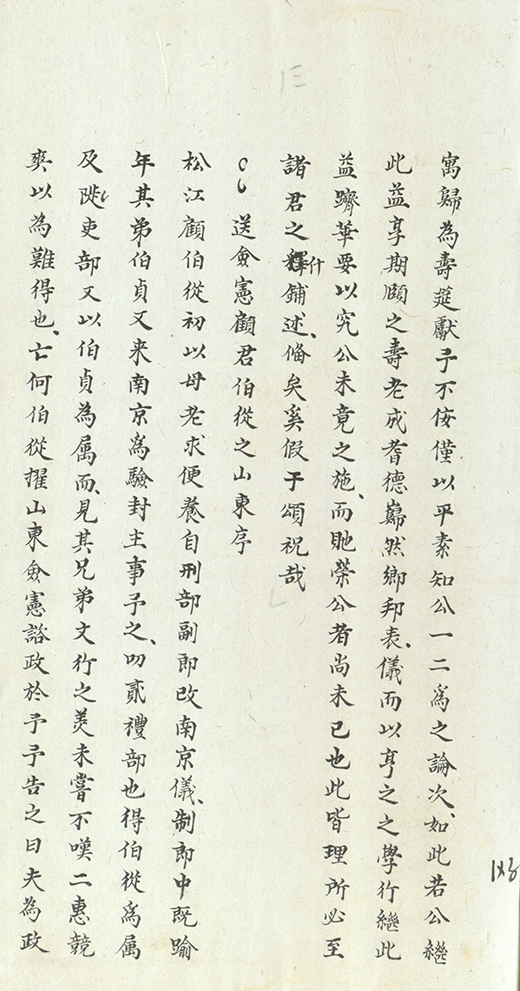 寓歸為壽莚獻予不佞僅以平素知公一二爲之論次如此若公繼
此益享期頤之壽老成耆德巋然鄉邦表儀而以亨之之學行繼此
益躋華要以究公未竟之施而貤榮公者尚未已也此皆理所必至
諸君之釋什鋪述俻矣奚假于頌祝哉
送僉憲顧君伯從之山東序
松江顧伯從初以母老求便養自刑部副郎改南京儀制郎中既踰
年其弟伯貞又来南京爲驗封主事予之叨貳禮部也得伯從爲属
及陡吏部又以伯貞為属而見其兄弟文行之美未嘗不嘆二惠競
爽以為難得也亡何伯從擢山東僉憲諮政於予予告之曰夫為政